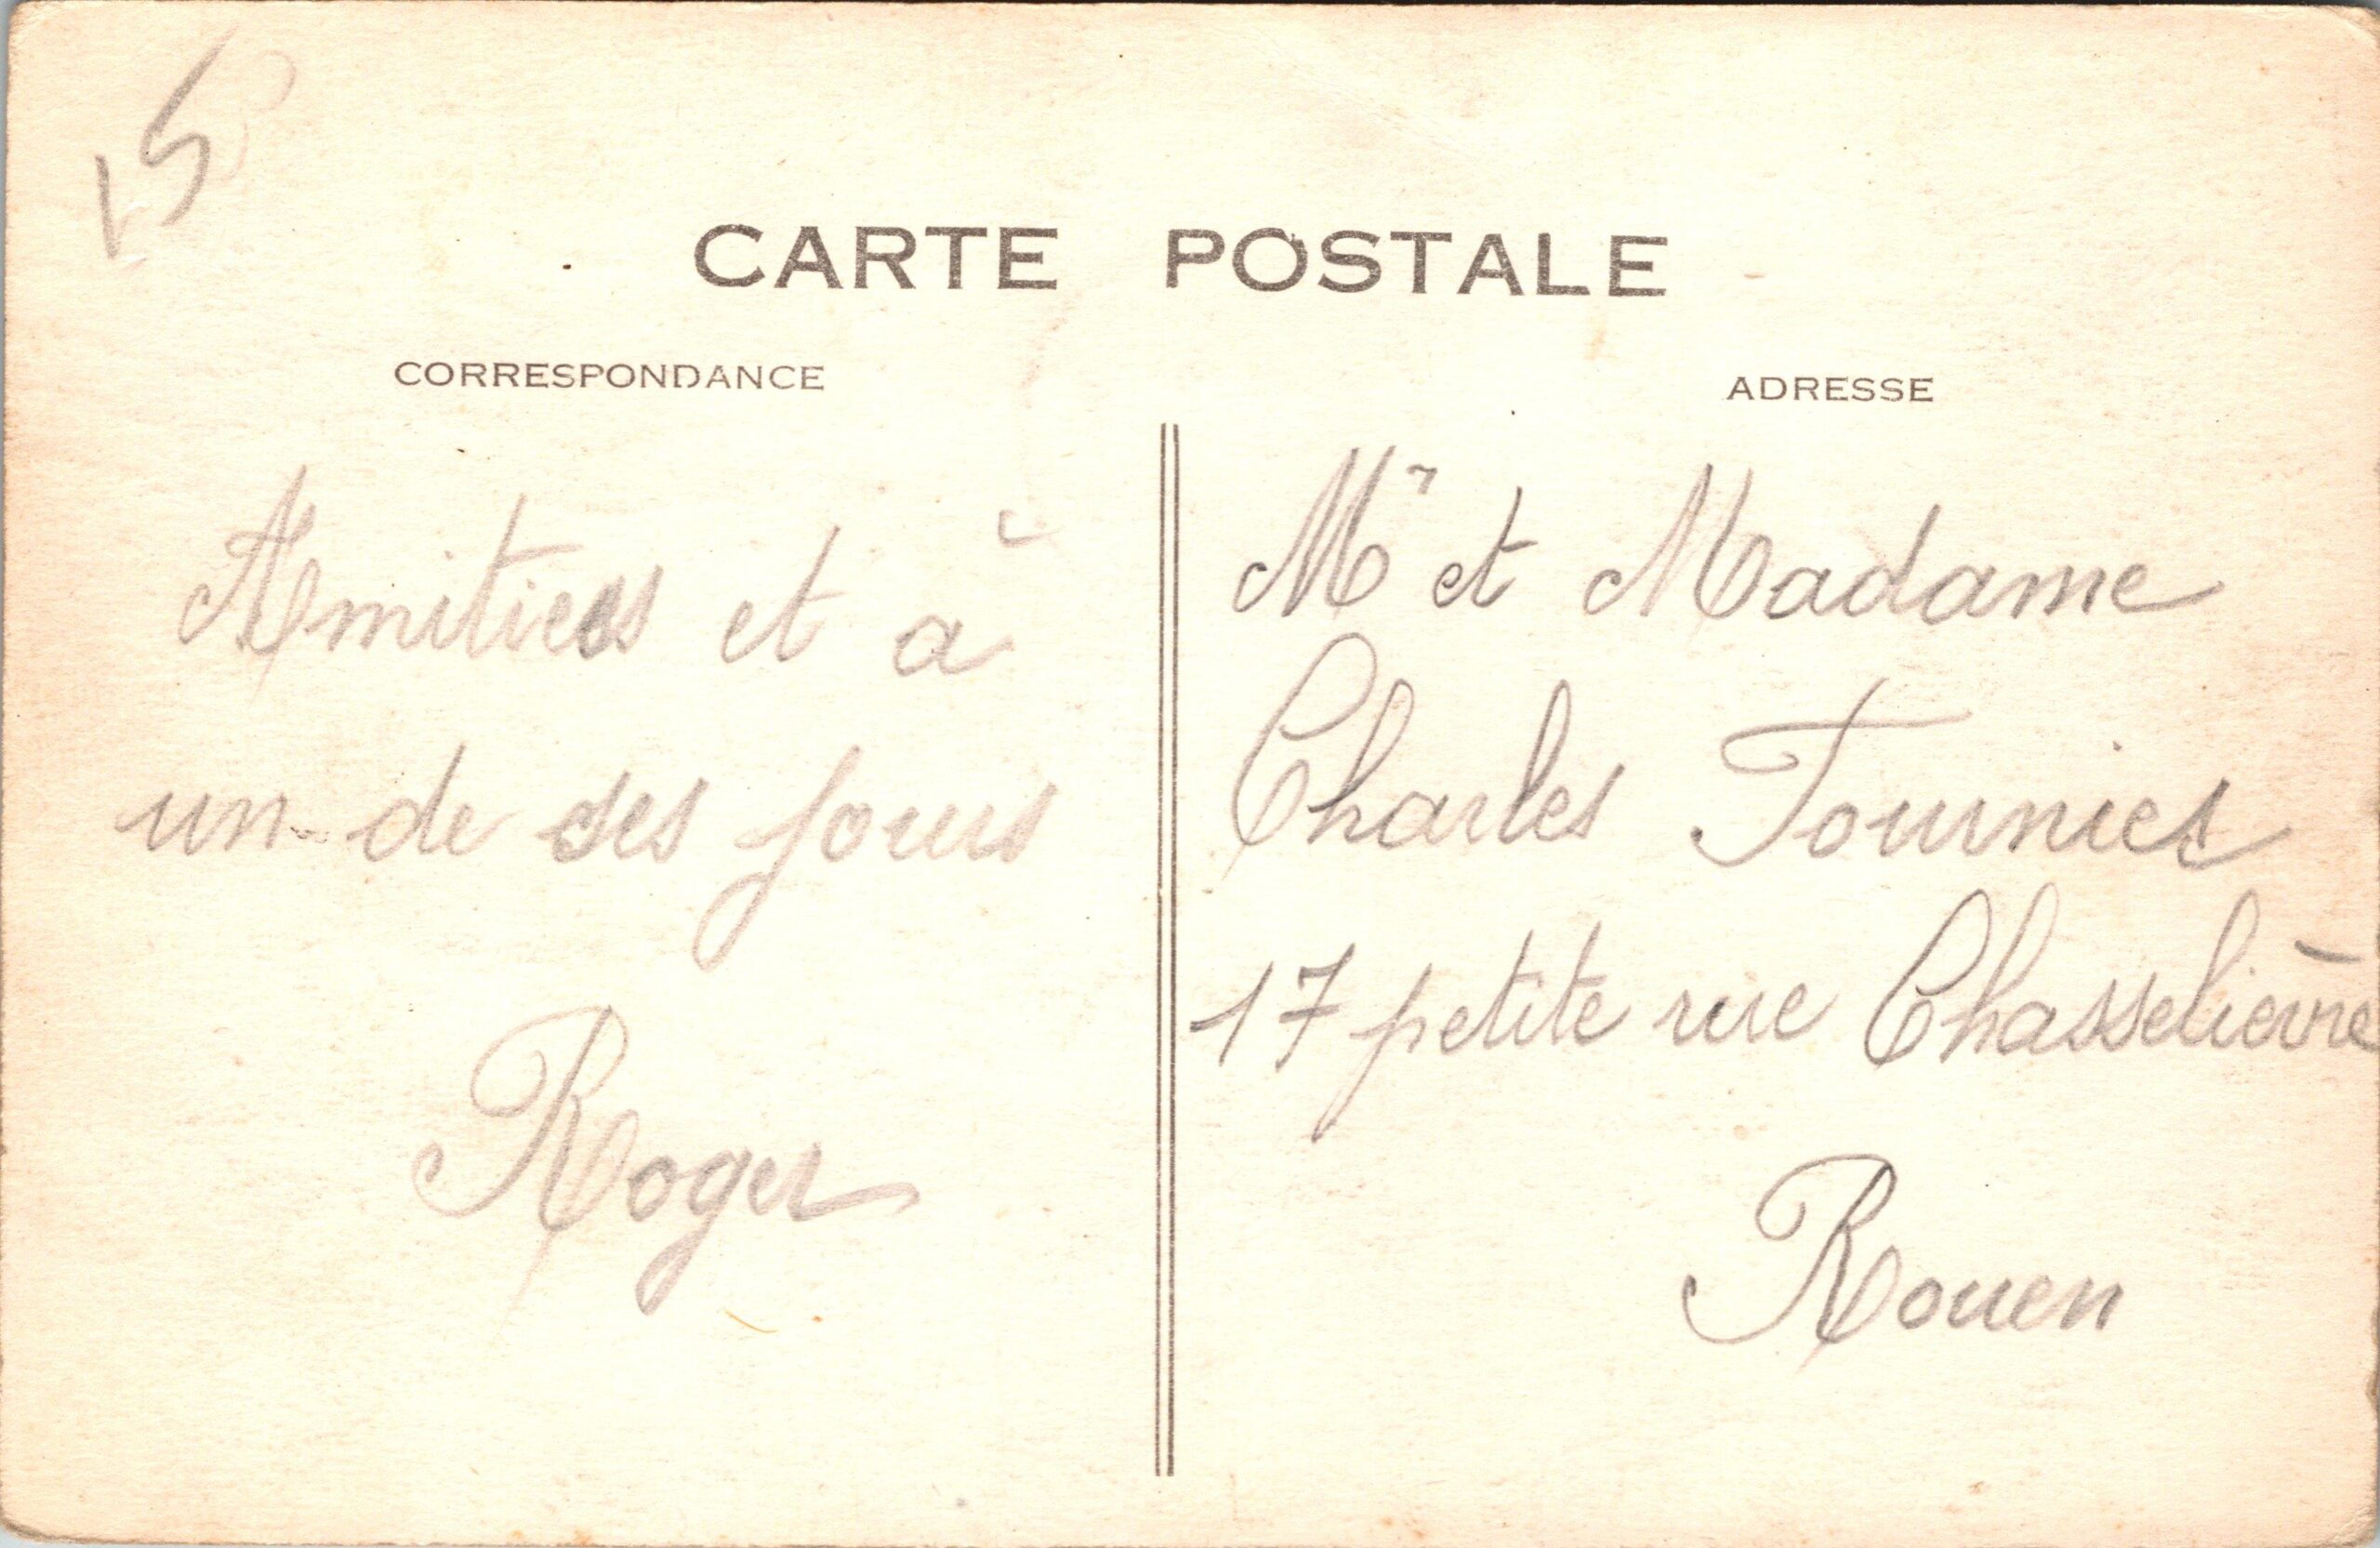 15
CARTE POSTALE
CORRESPONDANCE
Amities et à
un de ses jours
Roger
ADRESSE
Mr et Madame
Charles Tournier
17 petite rue Chasselièvre
Rouen